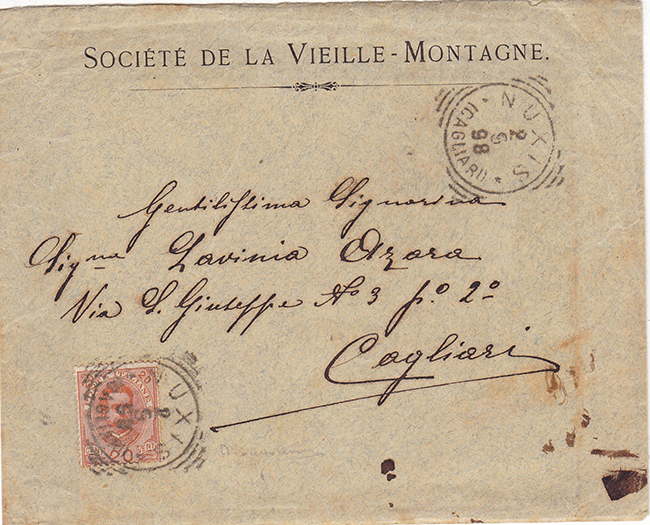 SOCIÉTÉ DE LA VIEILLE-MONTAGNE.
NUXIS
2
5
98
(CAGLIARI)
Gentilissima Signorina
Signa Lavinia Azara
Via S. Giuseppe No 3 po. 2o
Cagliari
NUXIS
20
20